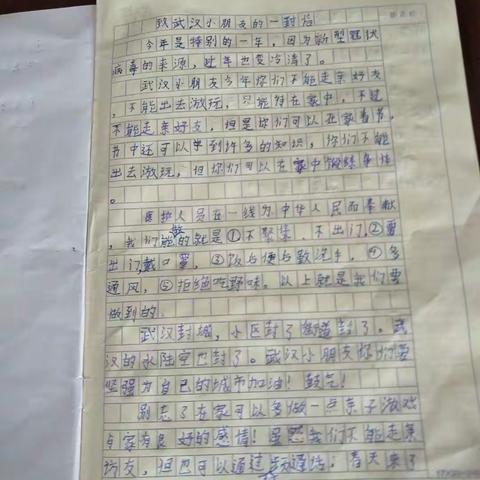 致武汉小朋友的一封信
今年是特别的一年，因为新型冠状
病毒的来源，过年也变冷清了。
武汉小朋友今年你们不能走亲好友
，不能出去游玩，只能待在家中，不能
不能走亲好友，但是你们可以在家看书，
书中还可以学到许多的知识，你们不能
出去游玩，但你们可以在家中锻练身体
。
医护人员在一线为中华人民而奉献
，我们能做的就是①不聚集，不出门，②要
出门戴口罩，③饭前便后勤洗手，④多
通风，⑤拒绝吃野味。以上就是我们要
做到的。
武汉封城，小区封了街道封了。武
汉的水陆空巴封了。武汉小朋友你们要
坚强为自己的城市加油！鼓气！
别忘了在家可以多做一点亲子游戏
与家有良好的感情！虽然我们不能走亲
访友，但也可以通过电话；春天来了